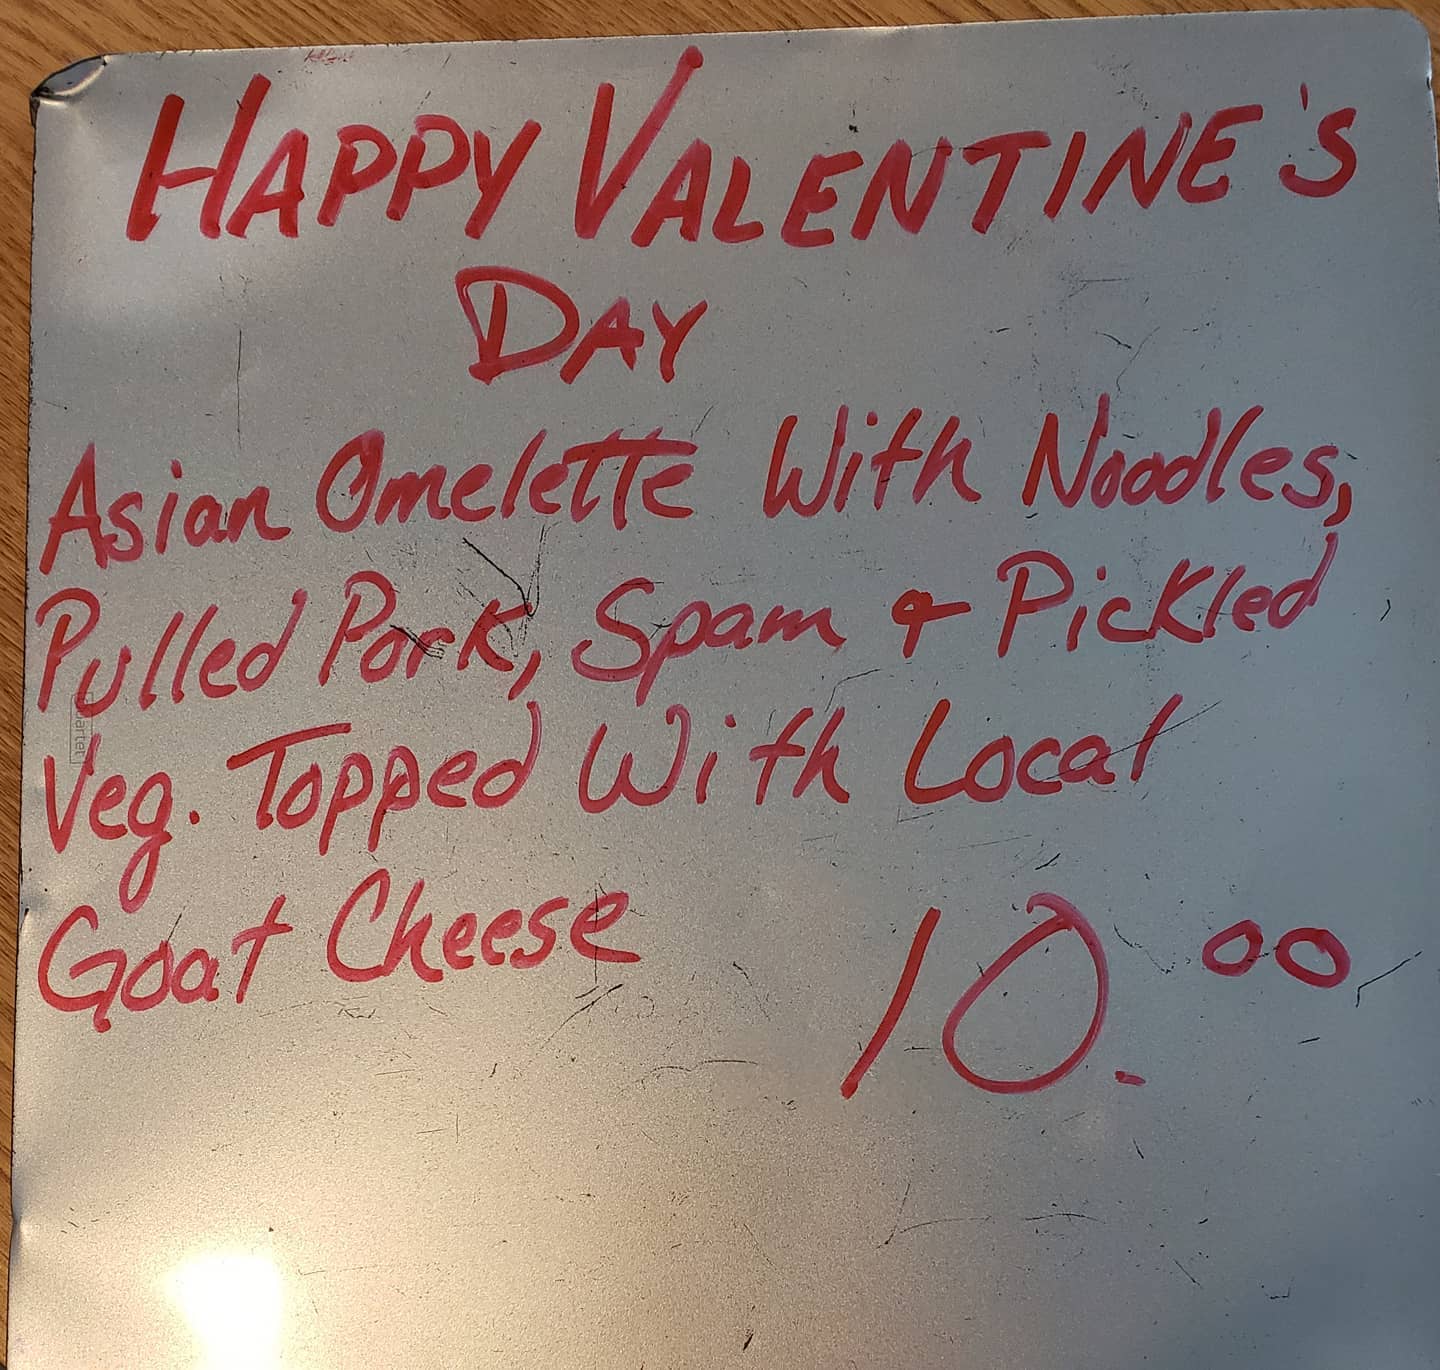 HAPPY VALENTINE'S
DAY
Asian Omelette With Noodles,
Pulled Pork, Spam & Pickled
Veg. Topped With Local
Goat Cheese
10.00
Quartet